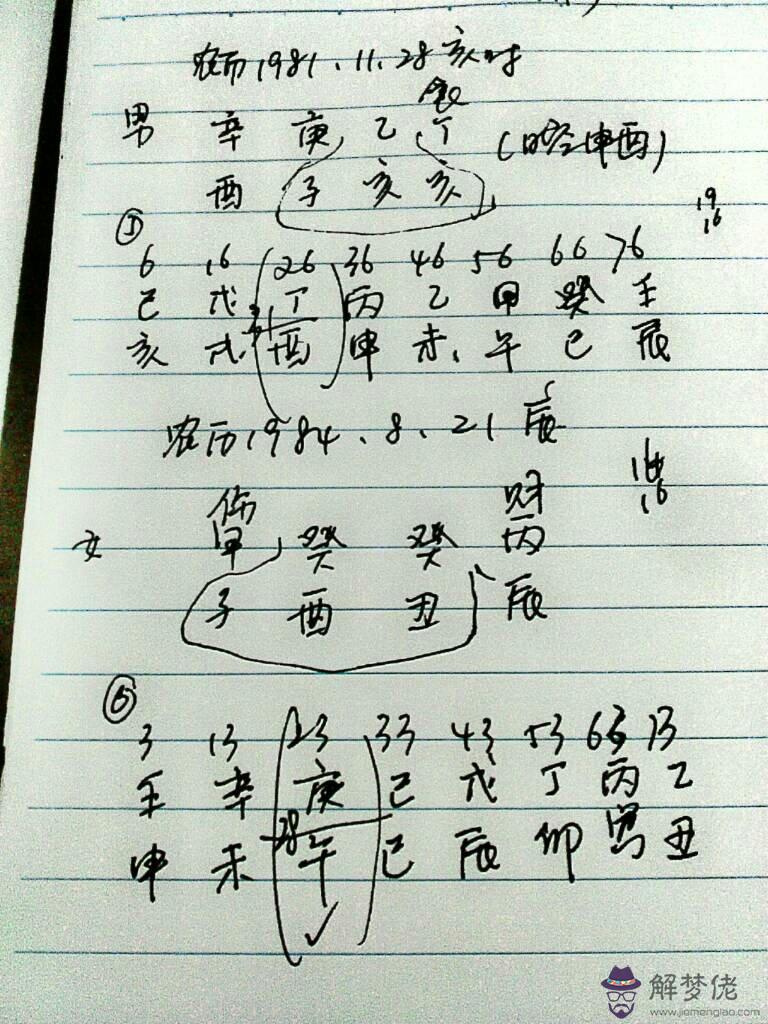 农历1981.11.28亥时
食
男 辛 庚 乙 丁 (时空申酉)
酉 子 亥 亥
19
16
①
6 16 26 36 46 56 66 76
己 戊 丁 丙 乙 甲 癸 壬
31
亥 戌 酉 申 未、午 巳 辰
农历1984.8.21辰
16
伤 财
女 甲 癸 癸 丙
子 酉 丑 辰
3 13 23 33 43 53 63 73
壬 辛 庚 己 戊 丁 丙 乙
28
申 未 午 巳 辰 卯 寅 丑
解梦佬
www.jiemenglao.com